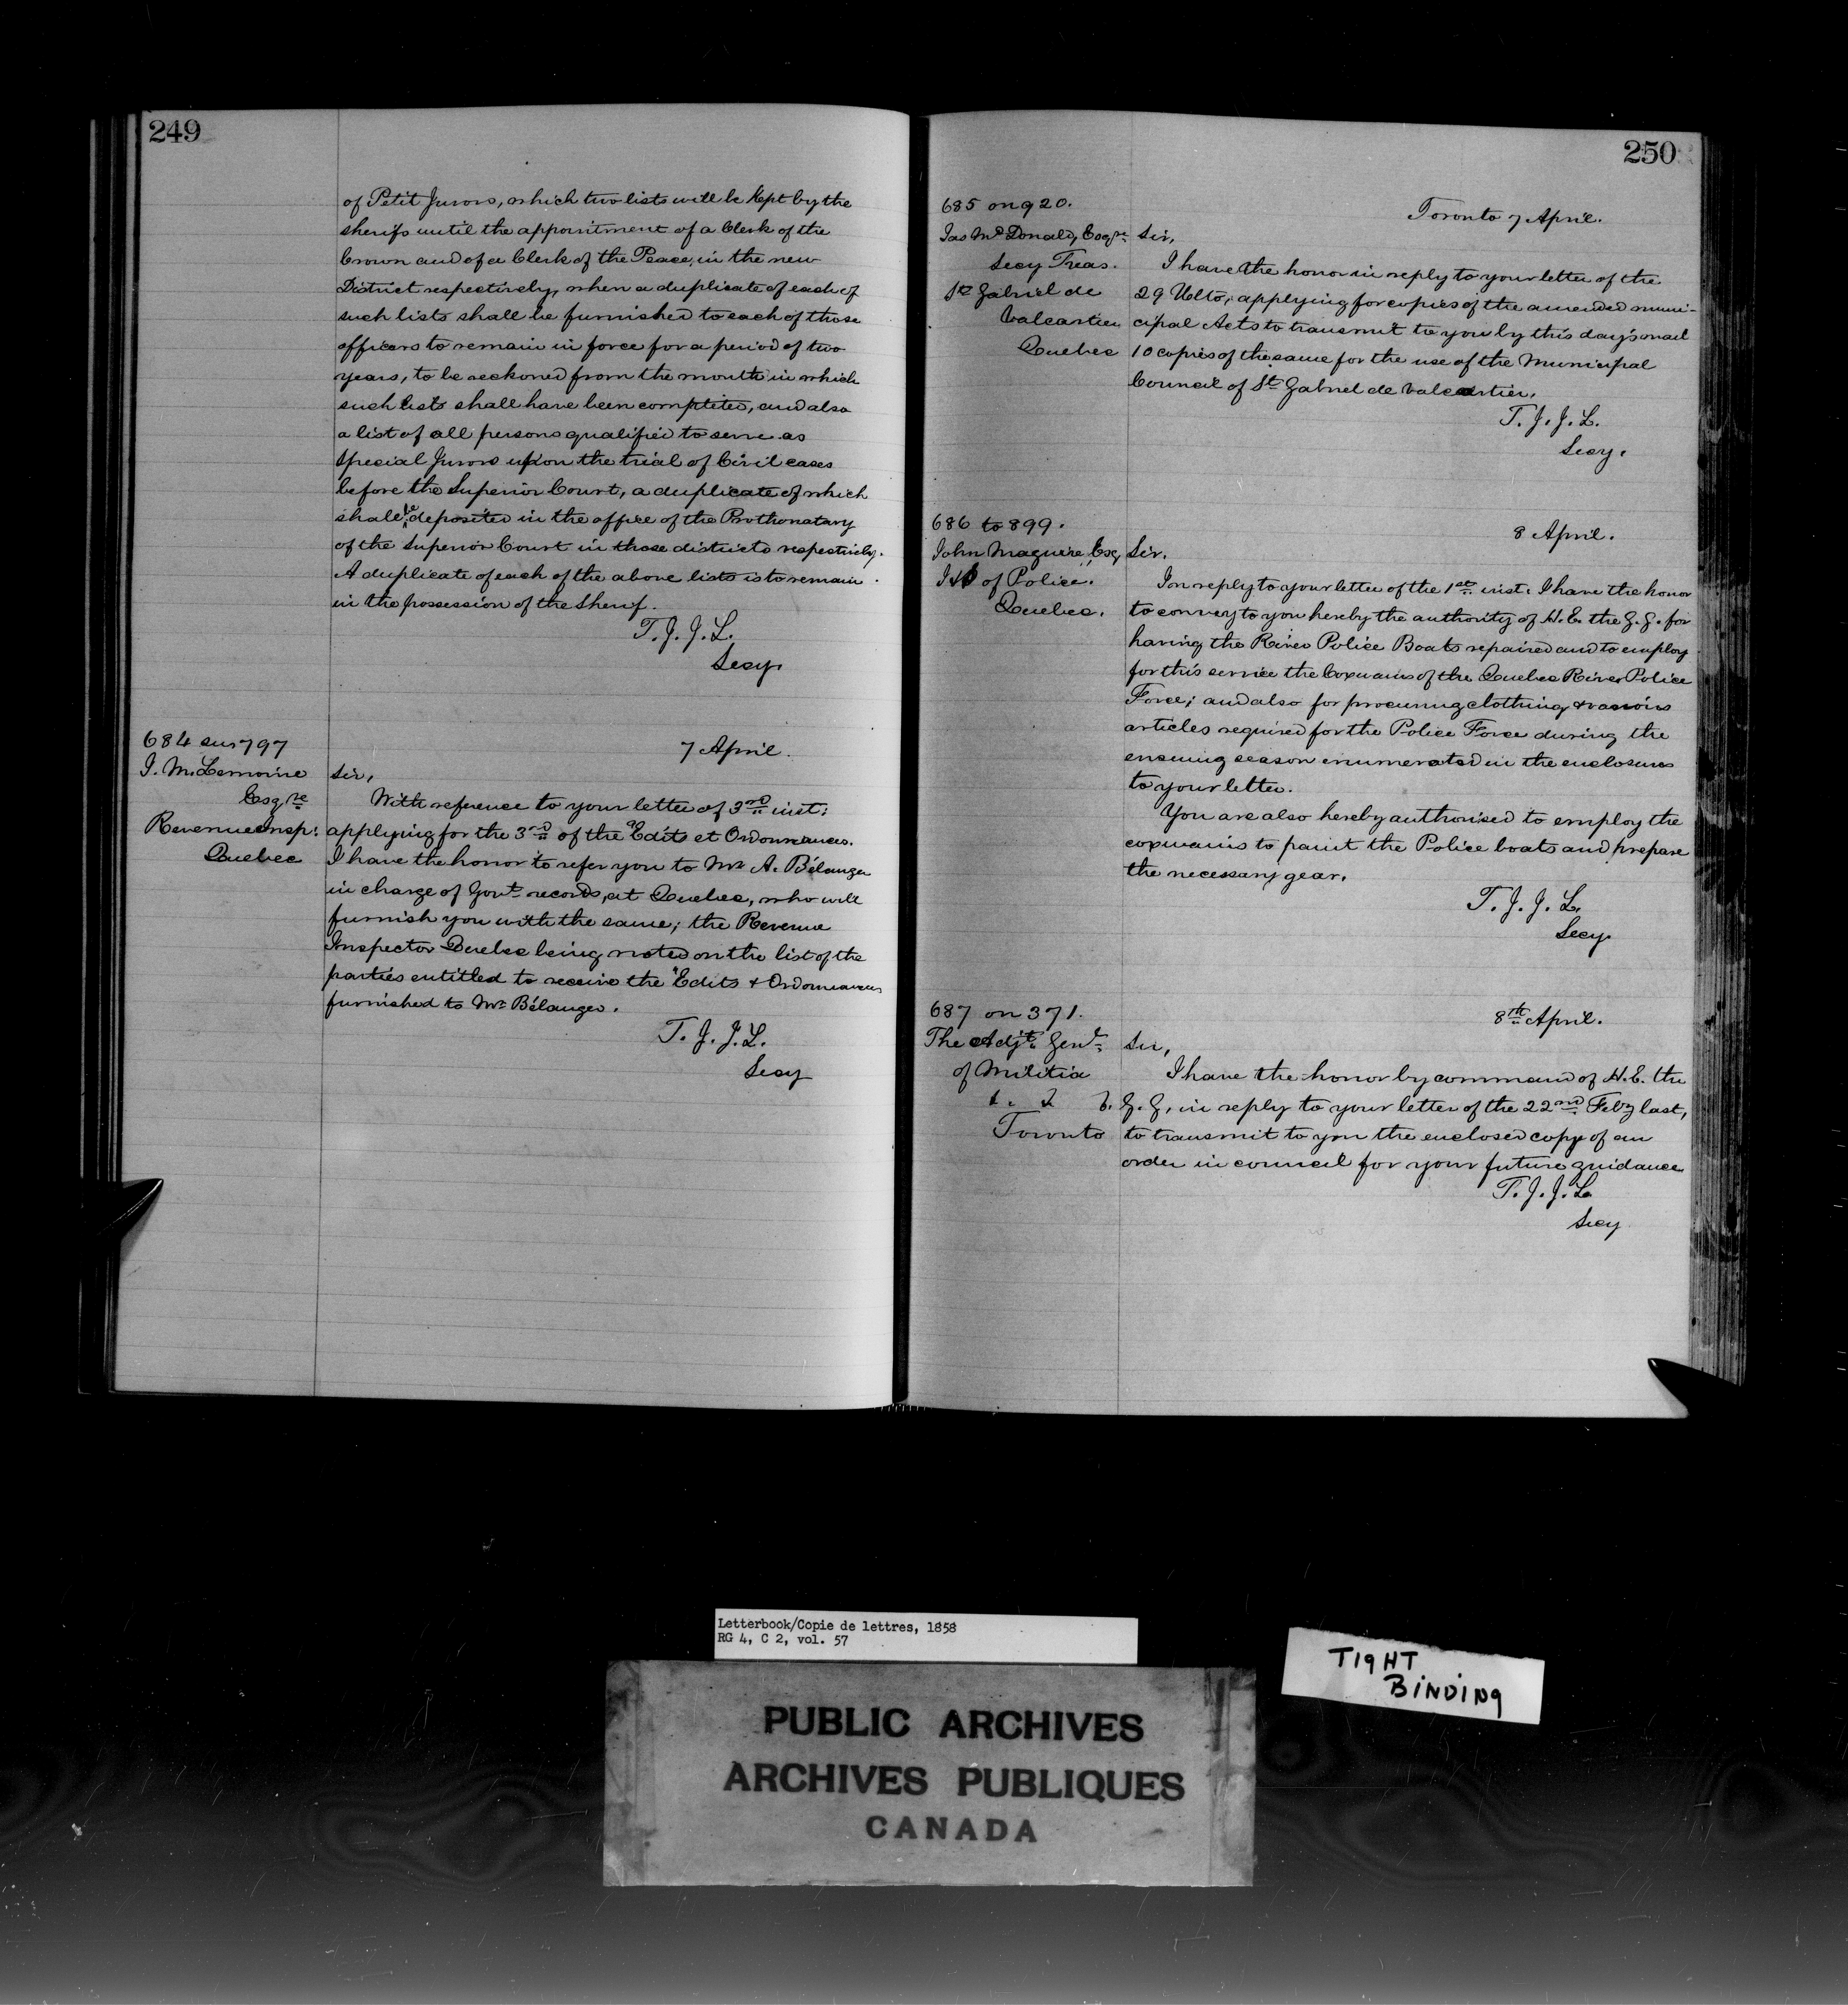 249
of Petit Jurors, which two lists will be kept by the
sheriffs until the appointment of a Clerk of the
Crown and of a Clerk of the Peace, in the new
District respectively, when a duplicate of each of
such lists shall be furnished to each of those
officers to remain in force for a period of two
years, to be reckoned from the month in which
such lists shall have been completed, and also
a list of all persons qualified to serve as
special Jurors upon the trial of Civil cases
before the Superior Court, a duplicate of which
shall be deposited in the office of the Prothonatary
of the Superior Court in those districts respectively.
A duplicate of each of the above lists is to remain
in the possession of the Sheriff.
T. J. J. L.
Secy.
684 sur 797
7 April.
J. M. Lemoine
Esqre
Revenue Insp:
Quebec
Sir,
With reference to your letter of 3rd inst:
applying for the 3rd of the "Edits et Ordonnances.
I have the honor to refer you to Mr A. Bélanger
in charge of Govt records, at Quebec, who will
furnish you with the same; the Revenue
Inspector Quebec being noted on the list of the
parties entitled to receive the "Edits & Ordonnances
furnished to Mr Bélanger.
T. J. J. L.
Secy
250
685 on 920.
Toronto 7 April.
Jas McDonald, Esqre
Secy Treas.
St Gabriel de
Valcartier
Quebec
Sir,
I have the honor in reply to your letter of the
29 Ulto, applying for copies of the amended muni-
cipal Acts to transmit to you by this day's mail
10 copies of the same for the use of the Municipal
Council of St Gabriel de Valcartier.
T. J. J. L.
Secy.
686 to 899.
8 April.
John Maguire, Esq,
I & S of Police.
Quebec.
Sir.
In reply to your letter of the 1st inst. I have the honor
to convey to you hereby the authority of H. E. the G. G. for
having the River Police Boats repaired and to employ
for this service the Coxwains of the Quebec River Police
Force; and also for procuring clothing & various
articles required for the Police Force during the
ensuing season enumerated in the enclosures
to your letter.
You are also hereby authorised to employ the
coxwains to paint the Police boats and prepare
the necessary gear.
T. J. J. L.
Secy.
687 on 371.
8th April.
The Adjt. Genl.
of Militia
Toronto
Sir,
I have the honor by command of H. E. the
G. G. in reply to your letter of the 22nd Feby last,
to transmit to you the enclosed copy of an
order in council for your future guidance
T. J. J. L.
Secy
Letterbook/Copie de lettres, 1858
RG 4, C 2, vol. 57
TIGHT
BINDING
PUBLIC ARCHIVES
ARCHIVES PUBLIQUES
CANADA